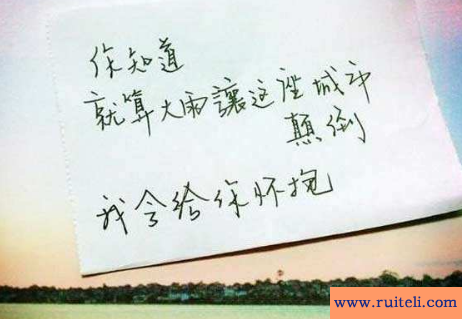 你知道
就算大雨讓这座城市
顛倒
我会给你怀抱
www.ruiteli.com